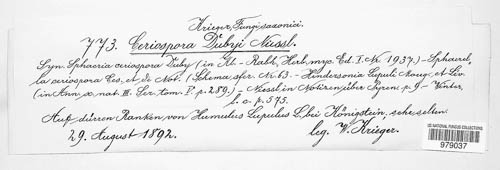 Krieger, Fungi saxonici.
773. Ceriospora Dubyi Niessl.
Syn. Sphaeria ceriospora Duby (in Kl.-Rabh. Herb. myc. Ed. I. Nr. 1937.) - Sphaerel-
la ceriospora Ces. et de Not. (Schema sfer. Nr. 63. - Hendersonia Lupuli Moug. et Lév.
(in Ann. sc. nat. III. Ser. tom. V. p. 289.) - Niessl in Notizen über Pyren. p. 9 - Winter,
l. c. p. 575.
Auf dürren Ranken von Humulus Lupulus L. bei Königstein, sehr selten.
29. August 1892. leg. W. Krieger.
US NATIONAL FUNGUS COLLECTIONS
979037